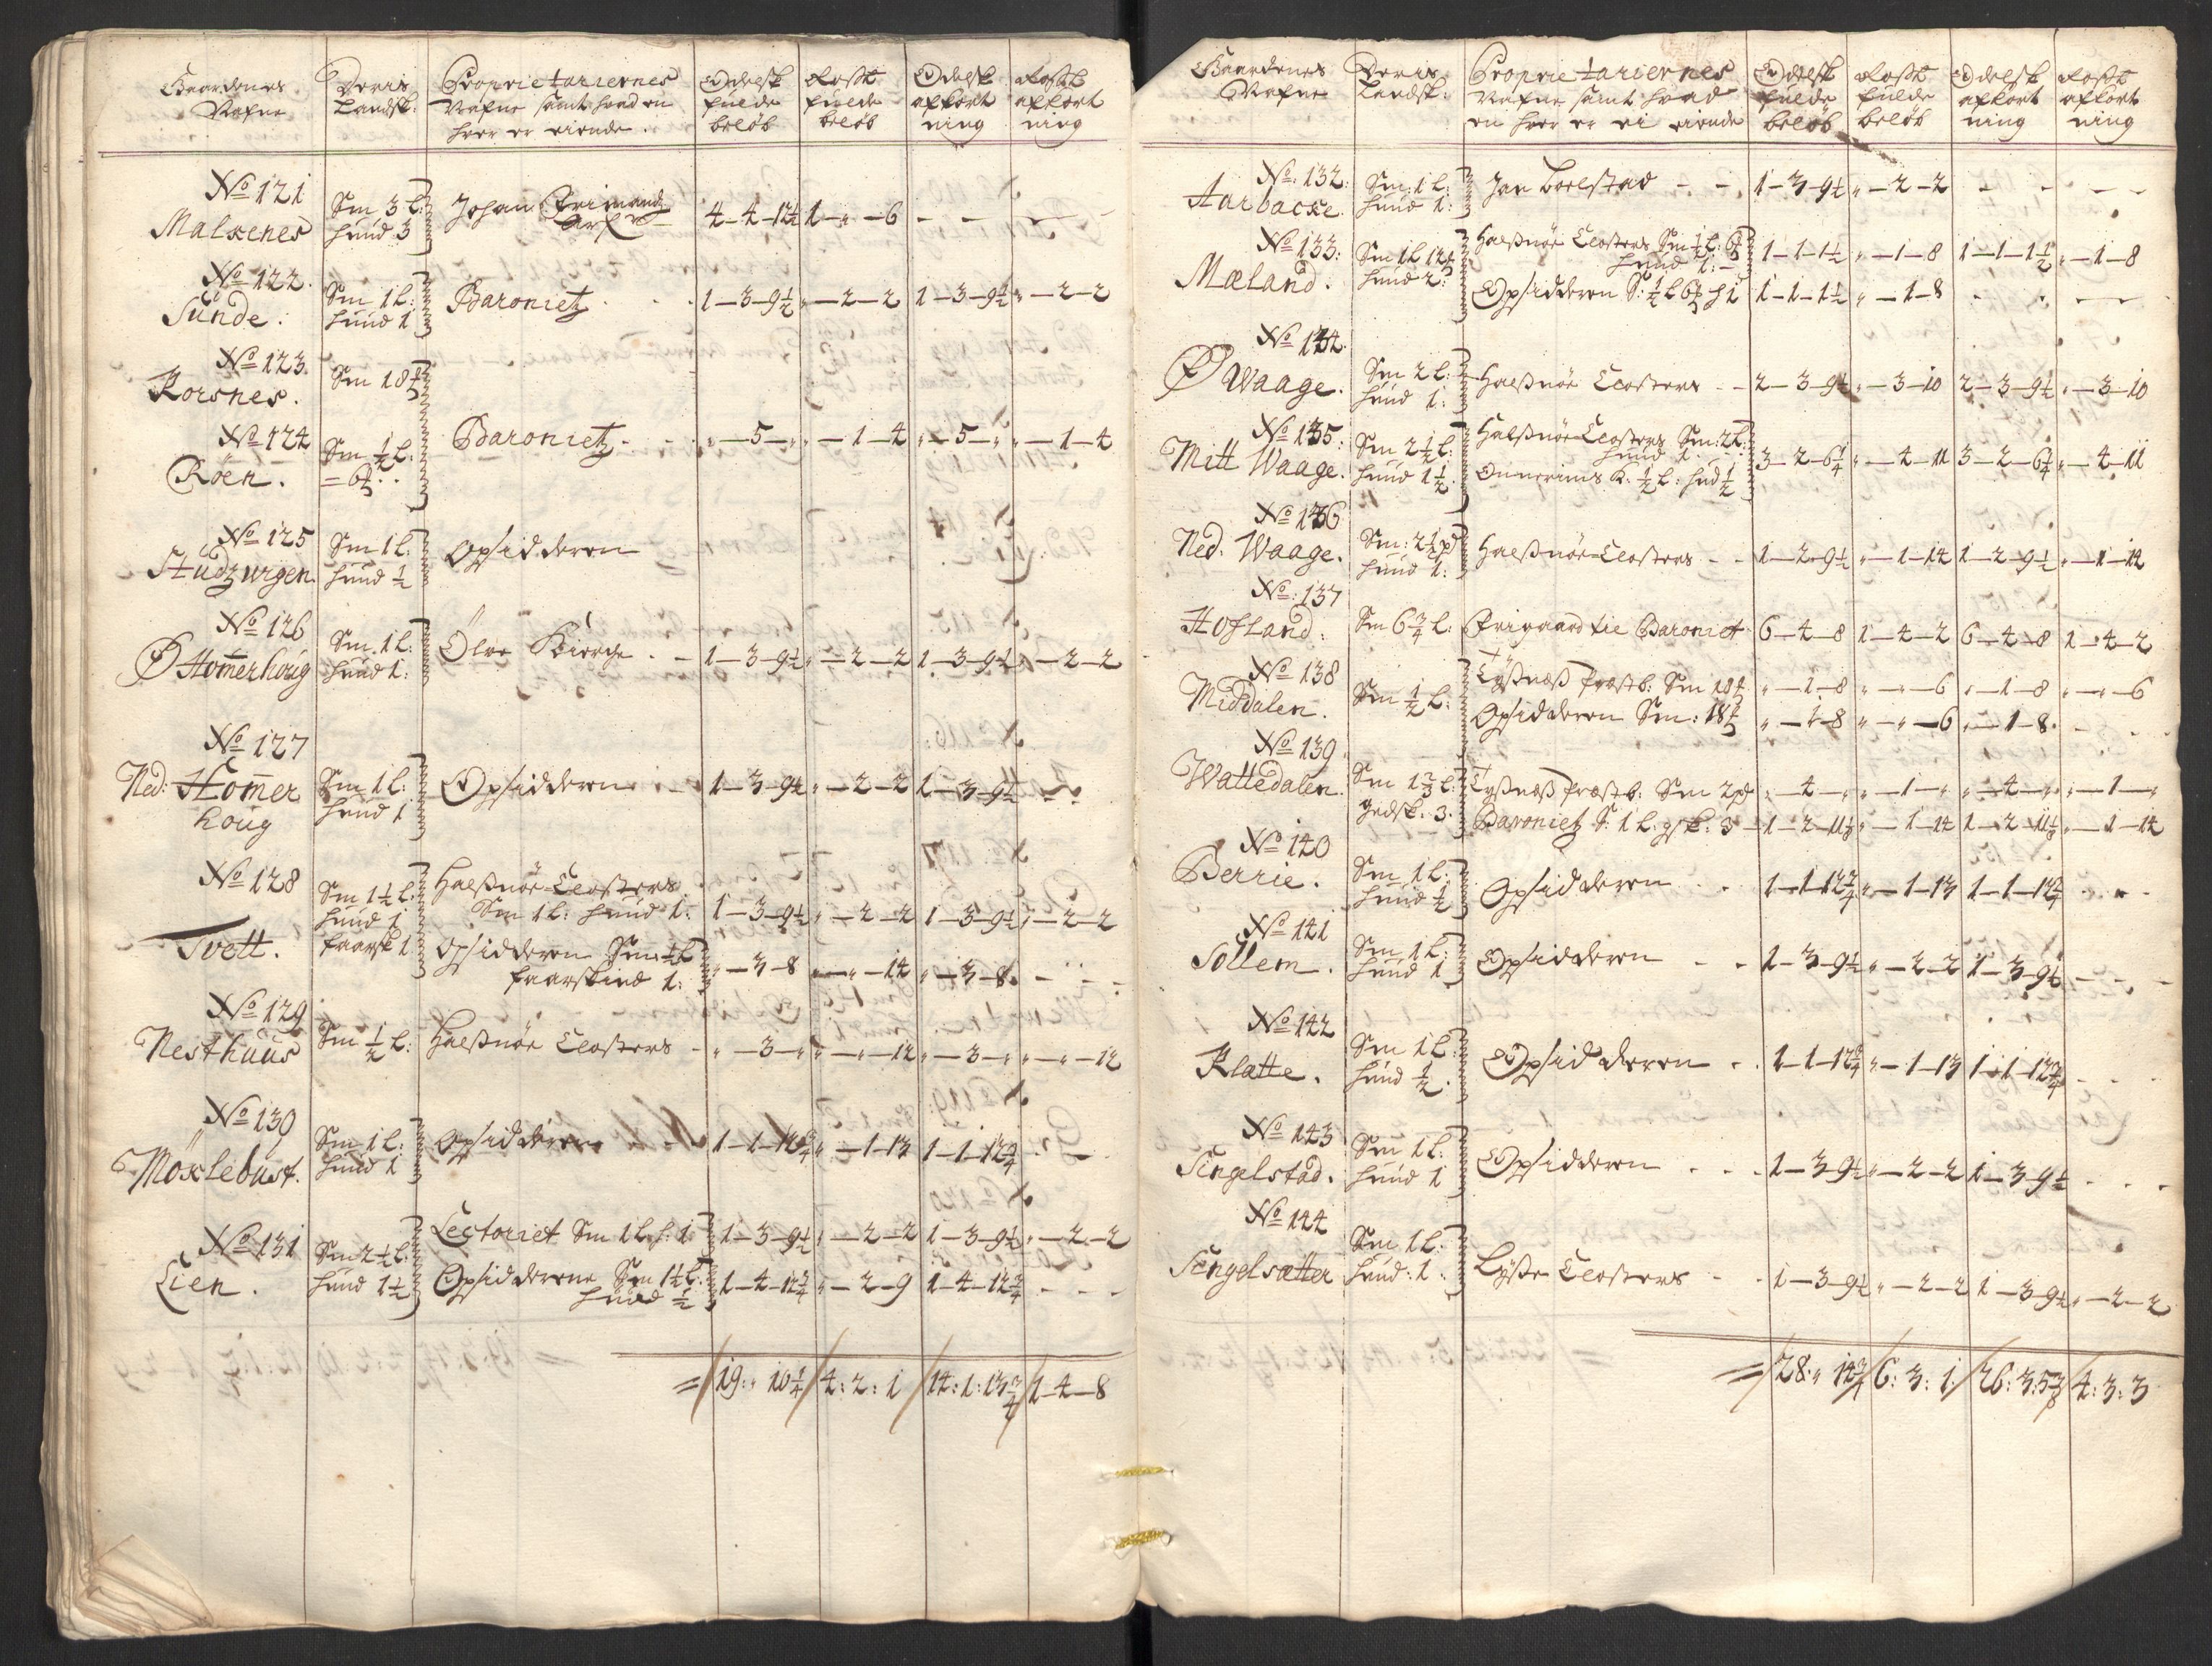 Gaardenes Nafne | Deris Landsk: | Proprietariernes Nafne samt hvad en hver er eiende. | Odelsk: fulde beløb | Rostk: fulde beløb | Odelsk: afkort ning | Rostk: afkort ning
No 121
Malkenes | Sm 3 L: hund 3 | Johan Frimands Arf: | 4-4-12½ | 1-"-6 | - - | - -
No 122.
Sünde. | Sm 1 L: hund 1 | Baroniet | 1-3-9½ | "-2-2 | 1-3-9½ | "-2-2
No 123.
Korsnes. | Sm 18
No 124
Röen. | Sm ½ L: = 6 | Baroniet | "-5-" | "-1-4 | "-5-" | "-1-4
No 125
Stüdzurgen. | Sm 1 L: hund ½ | Opsidderen
No 126
Ø Homerhoüg | Sm. 1 L: hund 1: | Ölve Kierche | 1-3-9½ | "-2-2 | 1-3-9½ | "-2-2
No 127
Ned: Homer houg | Sm 1 L: hund 1 | Opsidderen | 1-3-9½ | "-2-2 | 1-3-9½ | - -
No 128
Tvett. | Sm 1½ L: hund 1 faarsk 1 | Halsnöe Closters Sm 1 L: hund 1: | 1-3-9½ | "-2-2 | 1-3-9½ | "-2-2
Opsidderen Sm ½ L faarskind 1: | "-3-8 | "-"-14 | "-3-8 | - - -
No 129
Nesthüüs | Sm ½ L: | Halsnöe Closters | "-3-" | "-"-12 | "-3-" | "-"-12
No 130
Möxlebüst. | Sm 1 L: hund 1 | Opsidderen | 1-1-12¾ | "-1-13 | 1-1-12¾ | - -
No 131
Lien. | Sm 2½ L: hund 1½ | Lectoriet Sm 1 L. h: 1 | 1-3-9½ | "-2-2 | 1-3-9½ | "-2-2
Opsidderene Sm 1½ L: hund ½ | 1-4-12¾ | "-2-9 | 1-4-12¾ | - - -
= / 19: " 10¼ / 4: 2: 1 / 14: 1: 13¾ / 1-4-8
Gaardenes Nafne | Deris Landsk: | Proprietariernes Nafne samt hvad en hver er ei eiende | Odelsk fulde beløb | Rostk fulde beløb | Odelsk afkort ning | Rostk afkort ning
No. 132:
Aarbacke. | Sm: 1 L: hund 1: | Jan Loelstad | 1-3-9½ | "-2-2 | - - | - -
No 133:
Mæland. | Sm 1 L 12 hund 2: | Halsnöe Closters Sm ½ L: 6 hund 1: | 1-1-1½ | "-1-8 | 1-1-1½ | "-1-8
Opsidderen S: ½ L 6 h 1 | 1-1-1½ | "-1-8 | - - | - -
No 134.
Ø Waage. | Sm 2 L: hund 1: | Halsnöe Closters | 2-3-9½ | "-3-10 | 2-3-9½ | "-3-10
No 135:
Mitt Waage. | Sm 2½ L: hund 1½ | Halsnöe Closters Sm: 2 L: hund 1. | 3-2-6¼ | "-4-11 | 3-2-6¼ | "-4-11
Onnerims K. ½ L: hud ½
No 136
Ned: Waage. | Sm: 2½ pd hund 1: | Halsnöe Closters | 1-2-9½ | "-1-14 | 1-2-9½ | "-1-14
No: 137
Hofland: | Sm 6¾ L: | Frigaard til Baroniet | 6-4-8 | 1-4-2 | 6-4-8 | 1-4-2
No 138
Middalen. | Sm ½ L: | Tyßnæß Præstb: Sm 18 | "-1-8 | "-"-6 | "-1-8 | "-"-6
Opsidderen Sm: 18 | "-1-8 | "-"-6 | "-1-8. | - -
No 139
Wattedalen. | Sm 1⅔ L: gedsk. 3. | Tyßnæß Præstb: Sm 2 pd | "-4-" | "-1-" | "-4-" | "-1-"
Baroniet S: 1 L: gsk: 3 | 1-2-11½ | "-1-14 | 1-2-11½ | "-1-14
No 140
Berrie. | Sm 1 L: hund ½ | Opsidderen | 1-1-12¾ | "-1-13 | 1-1-12¾ | - -
No 141
Söllem. | Sm 1 L: hund 1 | Opsidderen | 1-3-9½ | "-2-2 | 1-3-9½ | - - -
No 142
Klatte. | Sm 1 L: hund ½. | Opsidderen | 1-1-12¾ | "-1-13 | 1-1-12¾ | - - -
No 143
Singelstad. | Sm 1 L: hund 1 | Opsidderen | 1-3-9½ | "-2-2 | 1-3-9½ | - - -
No 144
Singelsætter | Sm 1 L: hund: 1. | Lyße Closters | 1-3-9½ | "-2-2 | 1-3-9½ | "-2-2
= / 28: " 14¾ / 6: 3: 1. / 26: 3: 5 / 4: 3: 3